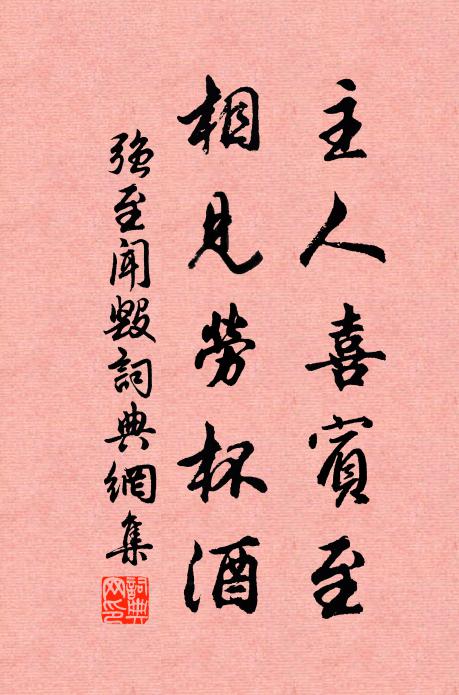 主人喜賓至
相見勞杯酒
強至聞毀詞典網集
詞典網印